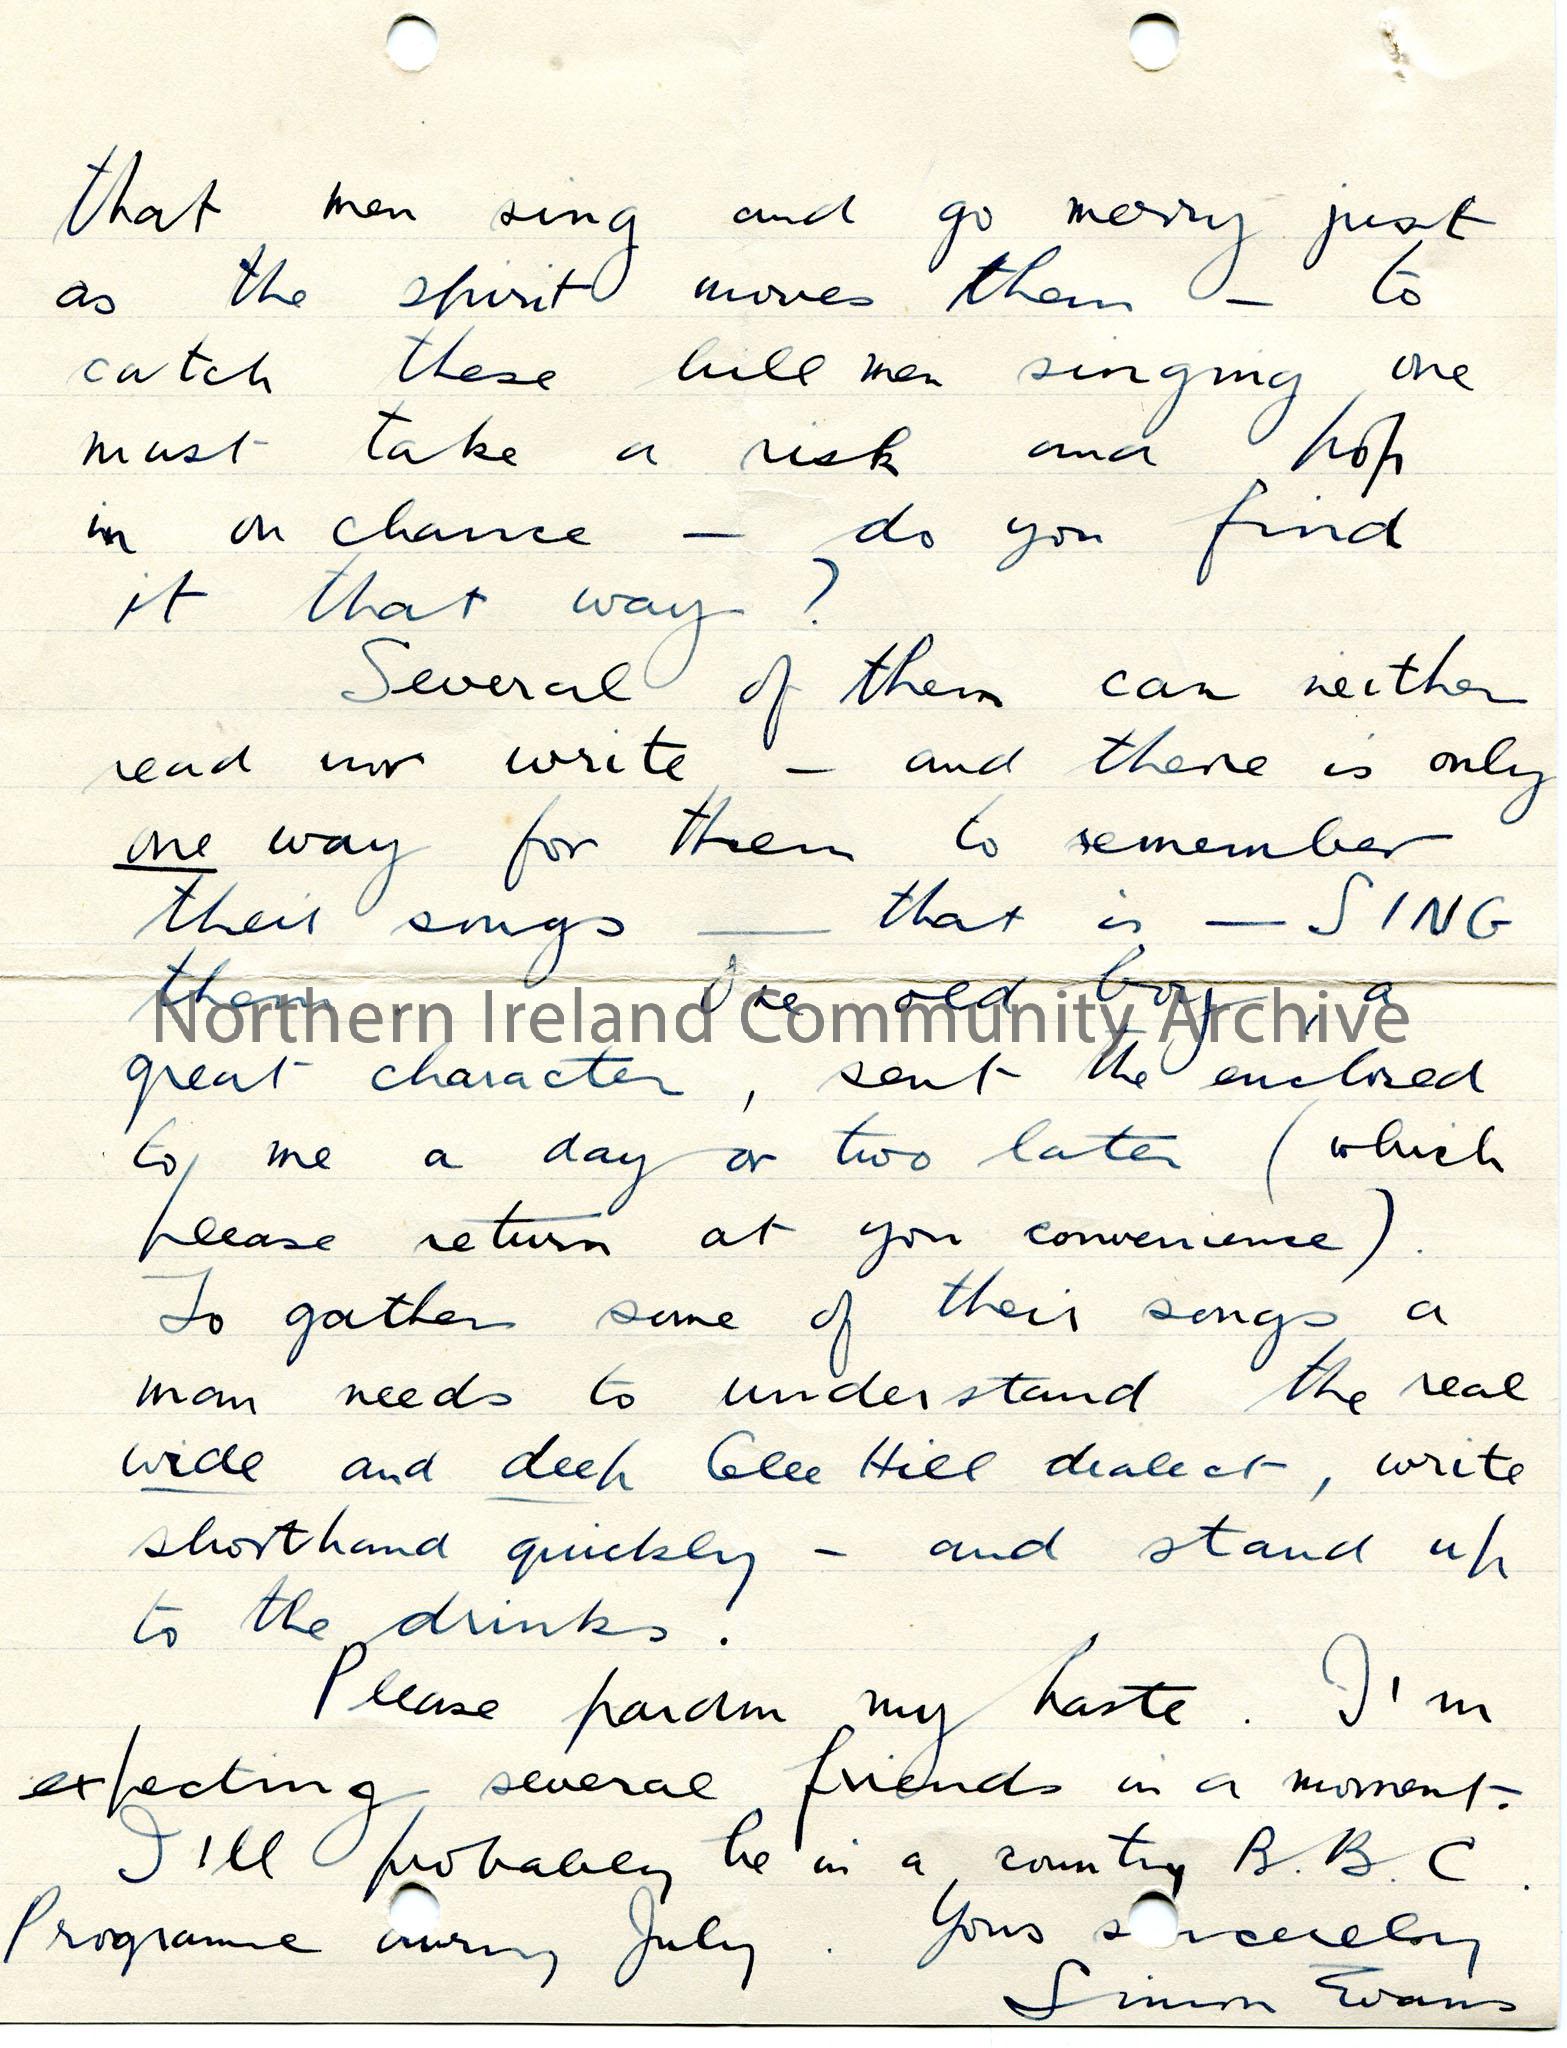 that men sing and go merry just
as the spirit moves them – to
catch these hill men singing one
must take a risk and hop
in on chance – do you find
it that way?
Several of them can neither
read nor write – and there is only
one way for them to remember
their songs — that is — SING
them. One old boy, a
Northern Ireland Community Archive
great character, sent the enclosed
to me a day or two later (which
please return at you convenience).
To gather some of their songs a
man needs to understand the real
wide and deep Clee Hill dialect, write
shorthand quickly – and stand up
to the drinks.
Please pardon my haste. I'm
expecting several friends in a moment.
I'll probably be in a country B.B.C.
Programme during July. Yours sincerely
Simon Evans